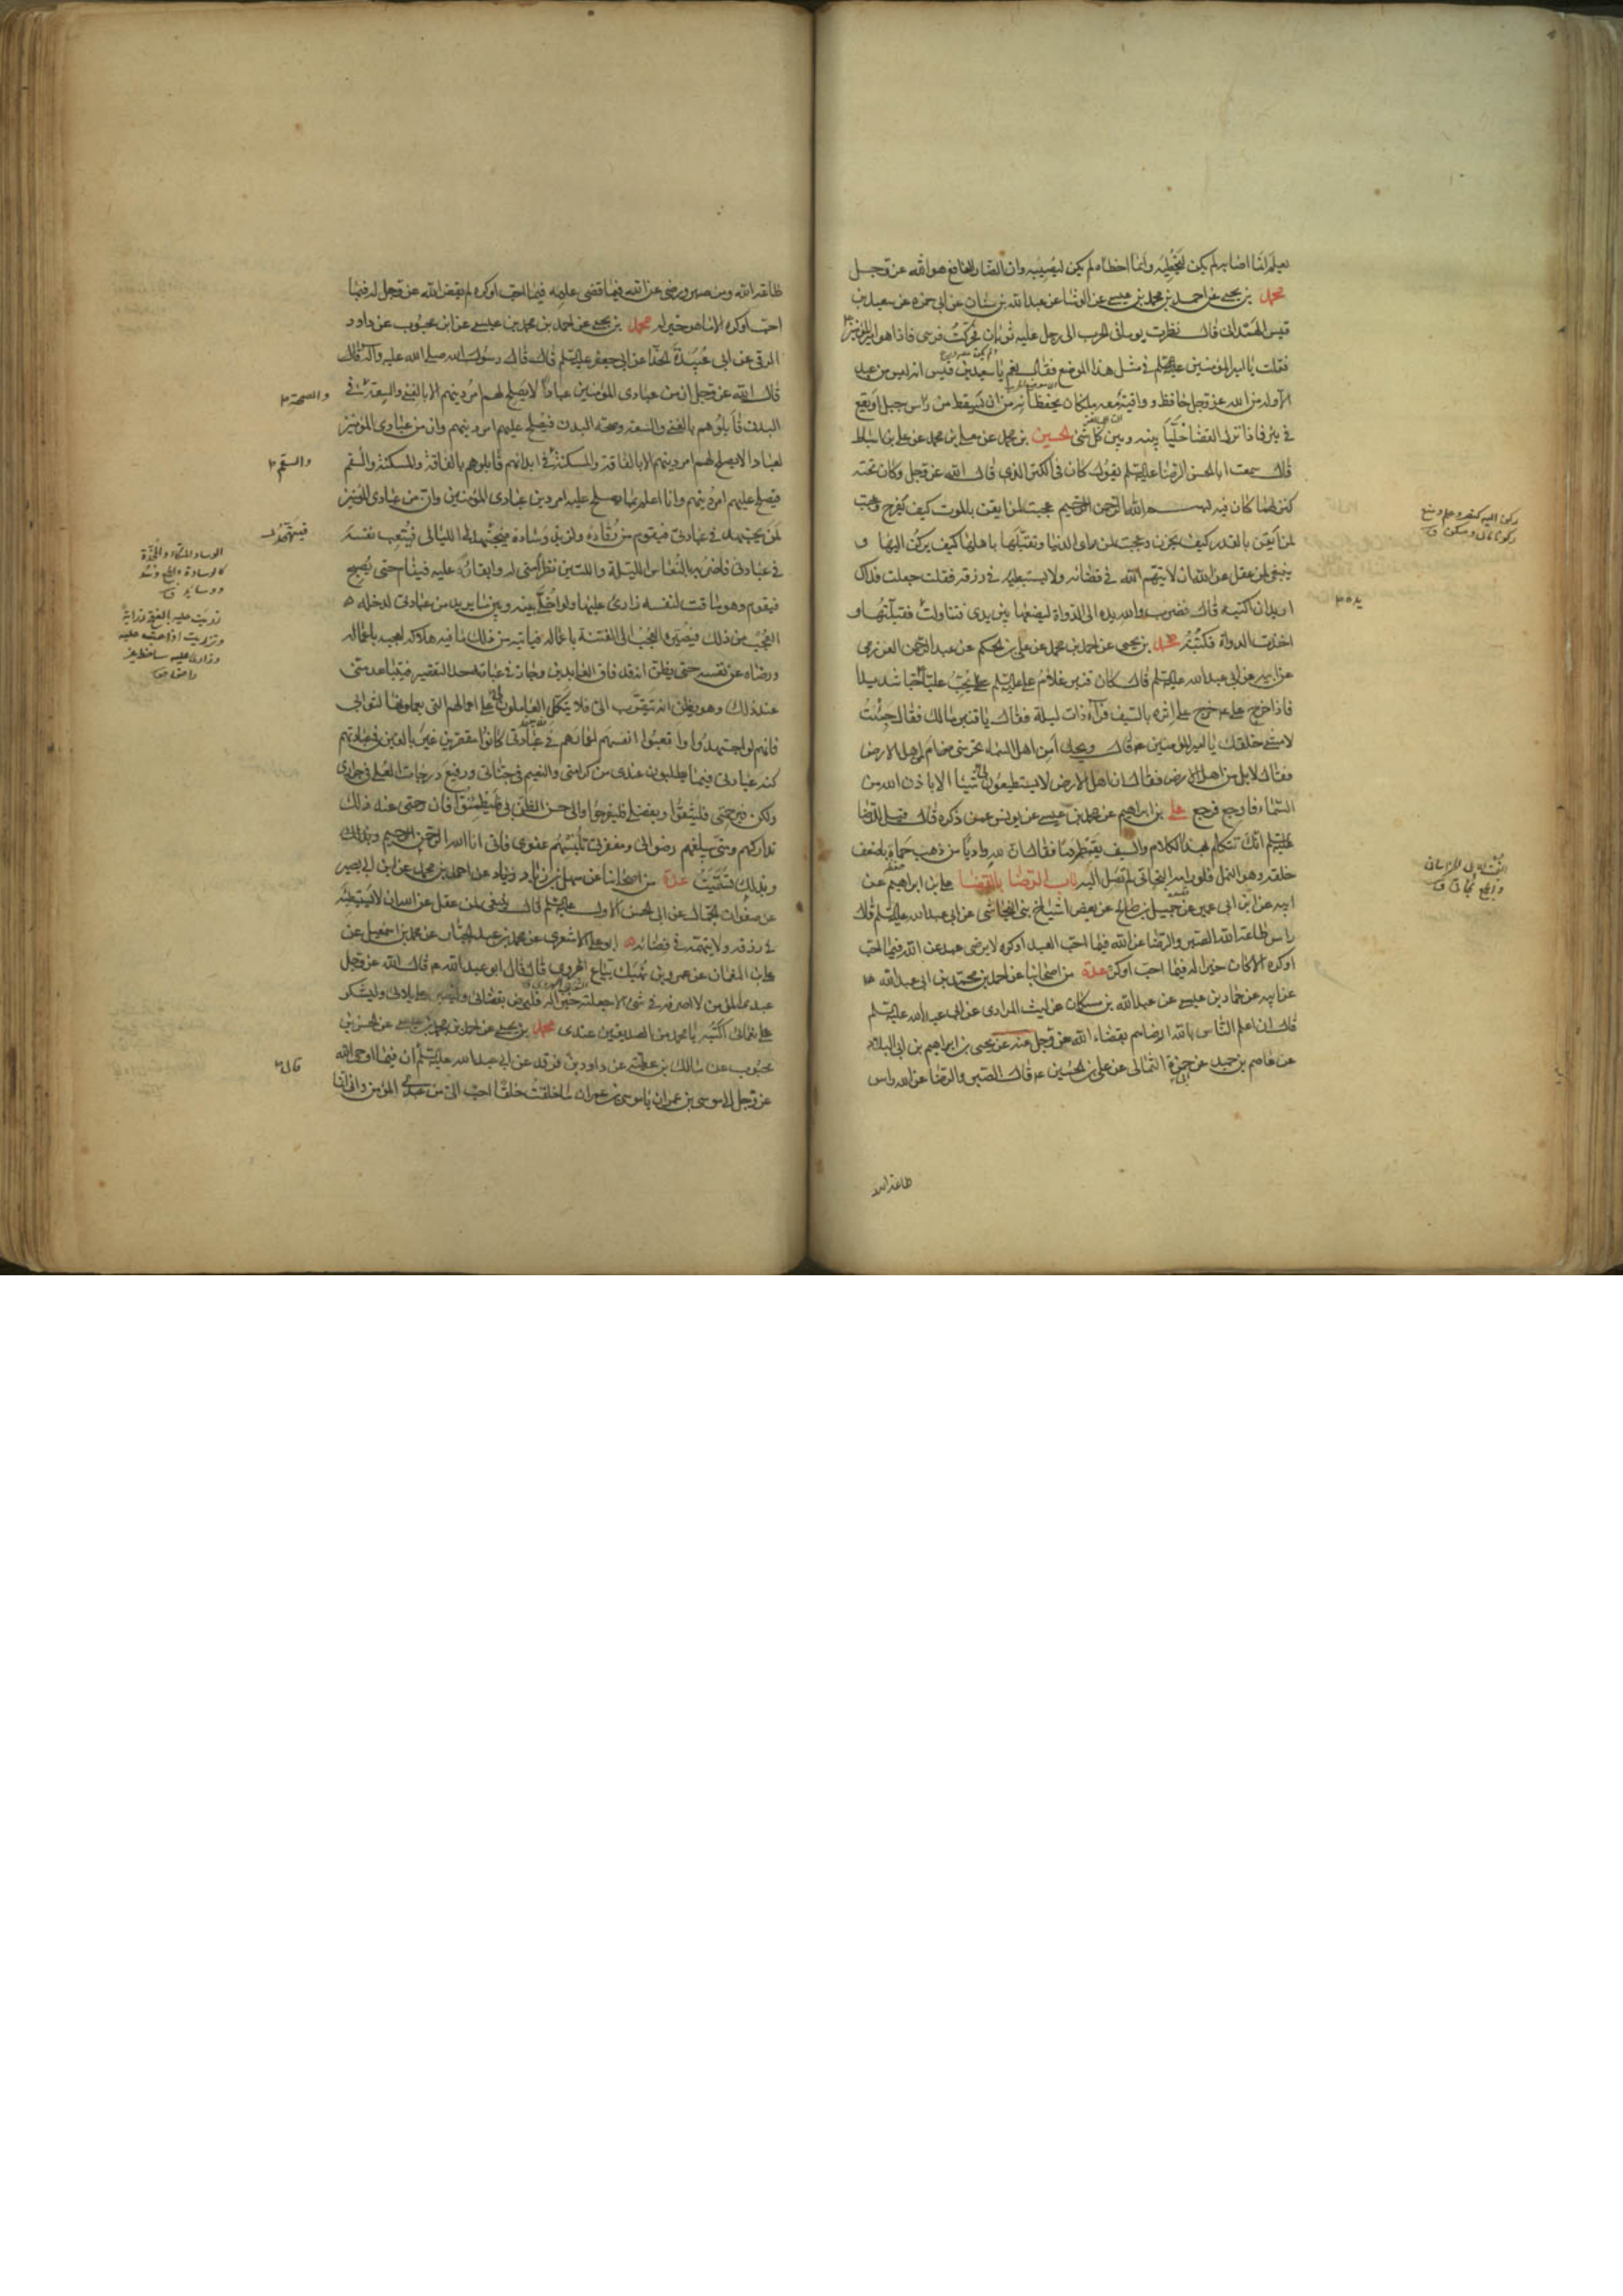 يعلم ان ما اصابه لم يكن ليخطئه وانما اخطاه لم يكن ليصيبه وان الضار النافع هو الله عز وجل
محمد بن يحيى عن احمد بن محمد بن عيسى عن الوشا عن عبدالله بن سنان عن ابى حمزه عن سعيد بن
قيس الهمدانى قال نظرت يوما فى الحرب الى رجل عليه ثوبان فحركت فرسى فاذا هو امير المؤمنين
فقلت يا امير المؤمنين فى مثل هذا الموضع فقال نعم يا سعيد بن قيس انه ليس من عبد
الا وله من الله عز وجل حافظ وواقية معه ملكان يحفظانه من ان يسقط من راس جبل او يقع
فى بئر فاذا نزل القضا خليا بينه وبين كل شئ الحسين بن محمد عن معلى بن محمد عن على بن اسباط
قال سمعت ابا الحسن الرضا عليه السلم يقول كان فى الكنز الذى قال الله عز وجل وكان تحته
كنز لهما كان فيه بسم الله الرحمن الرحيم عجبت لمن ايقن بالموت كيف يفرح وعجبت
لمن ايقن بالقدر كيف يحزن وعجبت لمن راى الدنيا وتقلبها باهلها كيف يركن اليها و
ينبغى لمن عقل عن الله ان لا يتهم الله فى قضائه ولا يستبطيه فى رزقه فقلت جعلت فداك
اريد ان اكتبه قال فضرب والله يده الى الدواة ليضعها بين يدى فتناولت فقبلتها و
اخذت الدواة فكتبته محمد بن يحيى عن احمد بن محمد عن على بن الحكم عن عبد الرحمن العزرمى
عن ابيه عن ابى عبدالله عليه السلم قال كان قنبر غلام على عليه السلم يحب عليا حبا شديدا
فاذا خرج على خرج على اثره بالسيف فرآه ذات ليلة فقال يا قنبر مالك فقال جئت
لامشى خلفك يا امير المؤمنين قال ويحك امن اهل السماء تحرسنى ام من اهل الارض
فقال لا بل من اهل الارض فقال ان اهل الارض لا يستطيعون لى شيئا الا باذن الله من
السماء فارجع فرجع على بن ابراهيم عن محمد بن عيسى عن يونس عمن ذكره قال قيل للرضا
عليه السلم انك تتكلم بهذا الكلام والسيف يقطر دما فقال ان لله واديا من ذهب حماه باضعف
خلقه وهو النمل فلو رامه البخاتى لم تصل اليه باب الرضا بالقضا على بن ابراهيم عن
ابيه عن ابن ابى عمير عن جميل بن صالح عن بعض اشياخ بنى النجاشى عن ابى عبدالله عليه السلم قال
راس طاعة الله الصبر والرضا عن الله فيما احب العبد او كره ولا يرضى عبد عن الله فيما احب
او كره الا كان خيرا له فيما احب او كره عدة من اصحابنا عن احمد بن محمد بن ابى عبدالله
عن ابيه عن حماد بن عيسى عن عبدالله بن مسكان عن ليث المرادى عن ابى عبدالله عليه السلم
قال ان اعلم الناس بالله ارضاهم بقضاء الله عز وجل عنه عن يحيى بن ابراهيم بن ابى البلاد
عن عاصم بن حميد عن ابى حمزة الثمالى عن على بن الحسين قال الصبر والرضا عن الله راس
طاعة الله
يده
طاعة الله ومن صبر ورضى عن الله فيما قضى عليه فيما احب او كره لم يقض الله عز وجل له فيما
احب او كره الا ما هو خير له محمد بن يحيى عن احمد بن محمد بن عيسى عن ابن محبوب عن داود
الرقى عن ابى عبيدة الحذا عن ابى جعفر عليه السلم قال قال رسول الله صلى الله عليه وآله قال
قال الله عز وجل ان من عبادى المؤمنين عبادا لا يصلح لهم امر دينهم الا بالغنى والسعة فى
البدن فابلوهم بالغنى والسعة وصحة البدن فيصلح عليهم امر دينهم وان من عبادى المؤمنين
لعبادا لا يصلح لهم امر دينهم الا بالفاقة والمسكنة فى ابدانهم فابلوهم بالفاقة والمسكنة والسقم
فيصلح عليهم امر دينهم وانا اعلم بما يصلح عليه امر دين عبادى المؤمنين وان من عبادى المؤمنين
لمن يجتهد فى عبادتى فيقوم من رقاده ولذيذ وسادة فيجتهد لى الليالى فيتعب نفسه
فى عبادتى فاضربه بالنعاس الليلة والليلتين نظرا منى له وابقاء عليه فينام حتى يصبح
فيقوم وهو ماقت لنفسه زارئ عليها ولو اخلى بينه وبين ما يريد من عبادتى لدخله
العجب من ذلك فيصيره العجب الى الفتنة باعماله فياتيه من ذلك ما فيه هلاكه لعجبه باعماله
ورضاه عن نفسه حتى يظن انه قد فاق العابدين وجاز فى عبادته حد التقصير فيتباعد منى
عند ذلك وهو يظن انه يتقرب الى فلا يتكل العاملون على اعمالهم التى يعملونها لثوابى
فانهم لو اجتهدوا واتعبوا انفسهم اعمارهم فى عبادتى كانوا مقصرين غير بالغين فى عبادتهم
كنه عبادتى فيما يطلبون عندى من كرامتى والنعيم فى جناتى ورفيع درجات العلى فى جوارى
ولكن برحمتى فليثقوا وبفضلى فليفرحوا والى حسن الظن بى فليطمئنوا فان رحمتى عند ذلك
تداركهم ومنى يبلغهم رضوانى ومغفرتى تلبسهم عفوى فانى انا الله الرحمن الرحيم وبذلك
وبذلك تسميت عدة من اصحابنا عن سهل بن زياد عن احمد بن محمد عن ابن ابى نصر
عن صفوان الجمال عن ابى الحسن الاول عليه السلم قال ينبغى لمن عقل عن الله ان لا يستبطئه
فى رزقه ولا يتهمه فى قضائه ابو على الاشعرى عن محمد بن عبد الجبار عن محمد بن اسمعيل عن
على بن النعمان عن عمرو بن نهيك بياع الهروى قال قال ابو عبدالله قال الله عز وجل
عبدى المؤمن لا اصرفه فى شئ الا جعلته خيرا له فليرض بقضائى وليصبر على بلائى وليشكر
على نعمائى اكتبه يا محمد من الصديقين عندى محمد بن يحيى عن احمد بن محمد بن عيسى عن الحسن بن
محبوب عن مالك بن عطية عن داود بن فرقد عن ابى عبدالله عليه السلم ان فيما اوحى الله
عز وجل الى موسى بن عمران يا موسى بن عمران ما خلقت خلقا احب الى من عبدى المؤمن وانى انما
والصحة
والسقم
فيتهجد